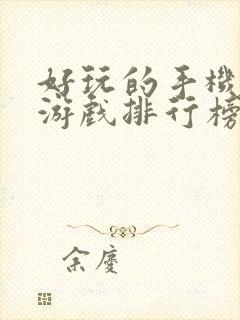 好玩的手機
游戲排行榜
余慶